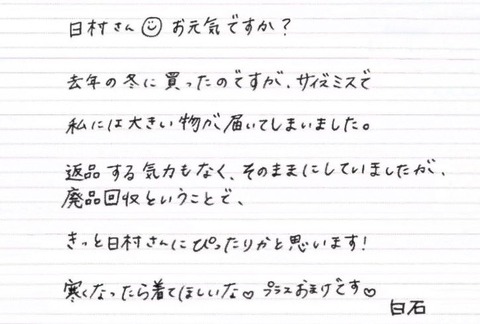 日村さん☺お元気ですか?
去年の冬に買ったのですが、サイズミスで
私には大きい物が届いてしまいました。
返品する気力もなく、そのままにしていましたが、
廃品回収ということで、
きっと日村さんにぴったりかと思います!
寒くなったら着てほしいな♡プラスおまけです♡
白石